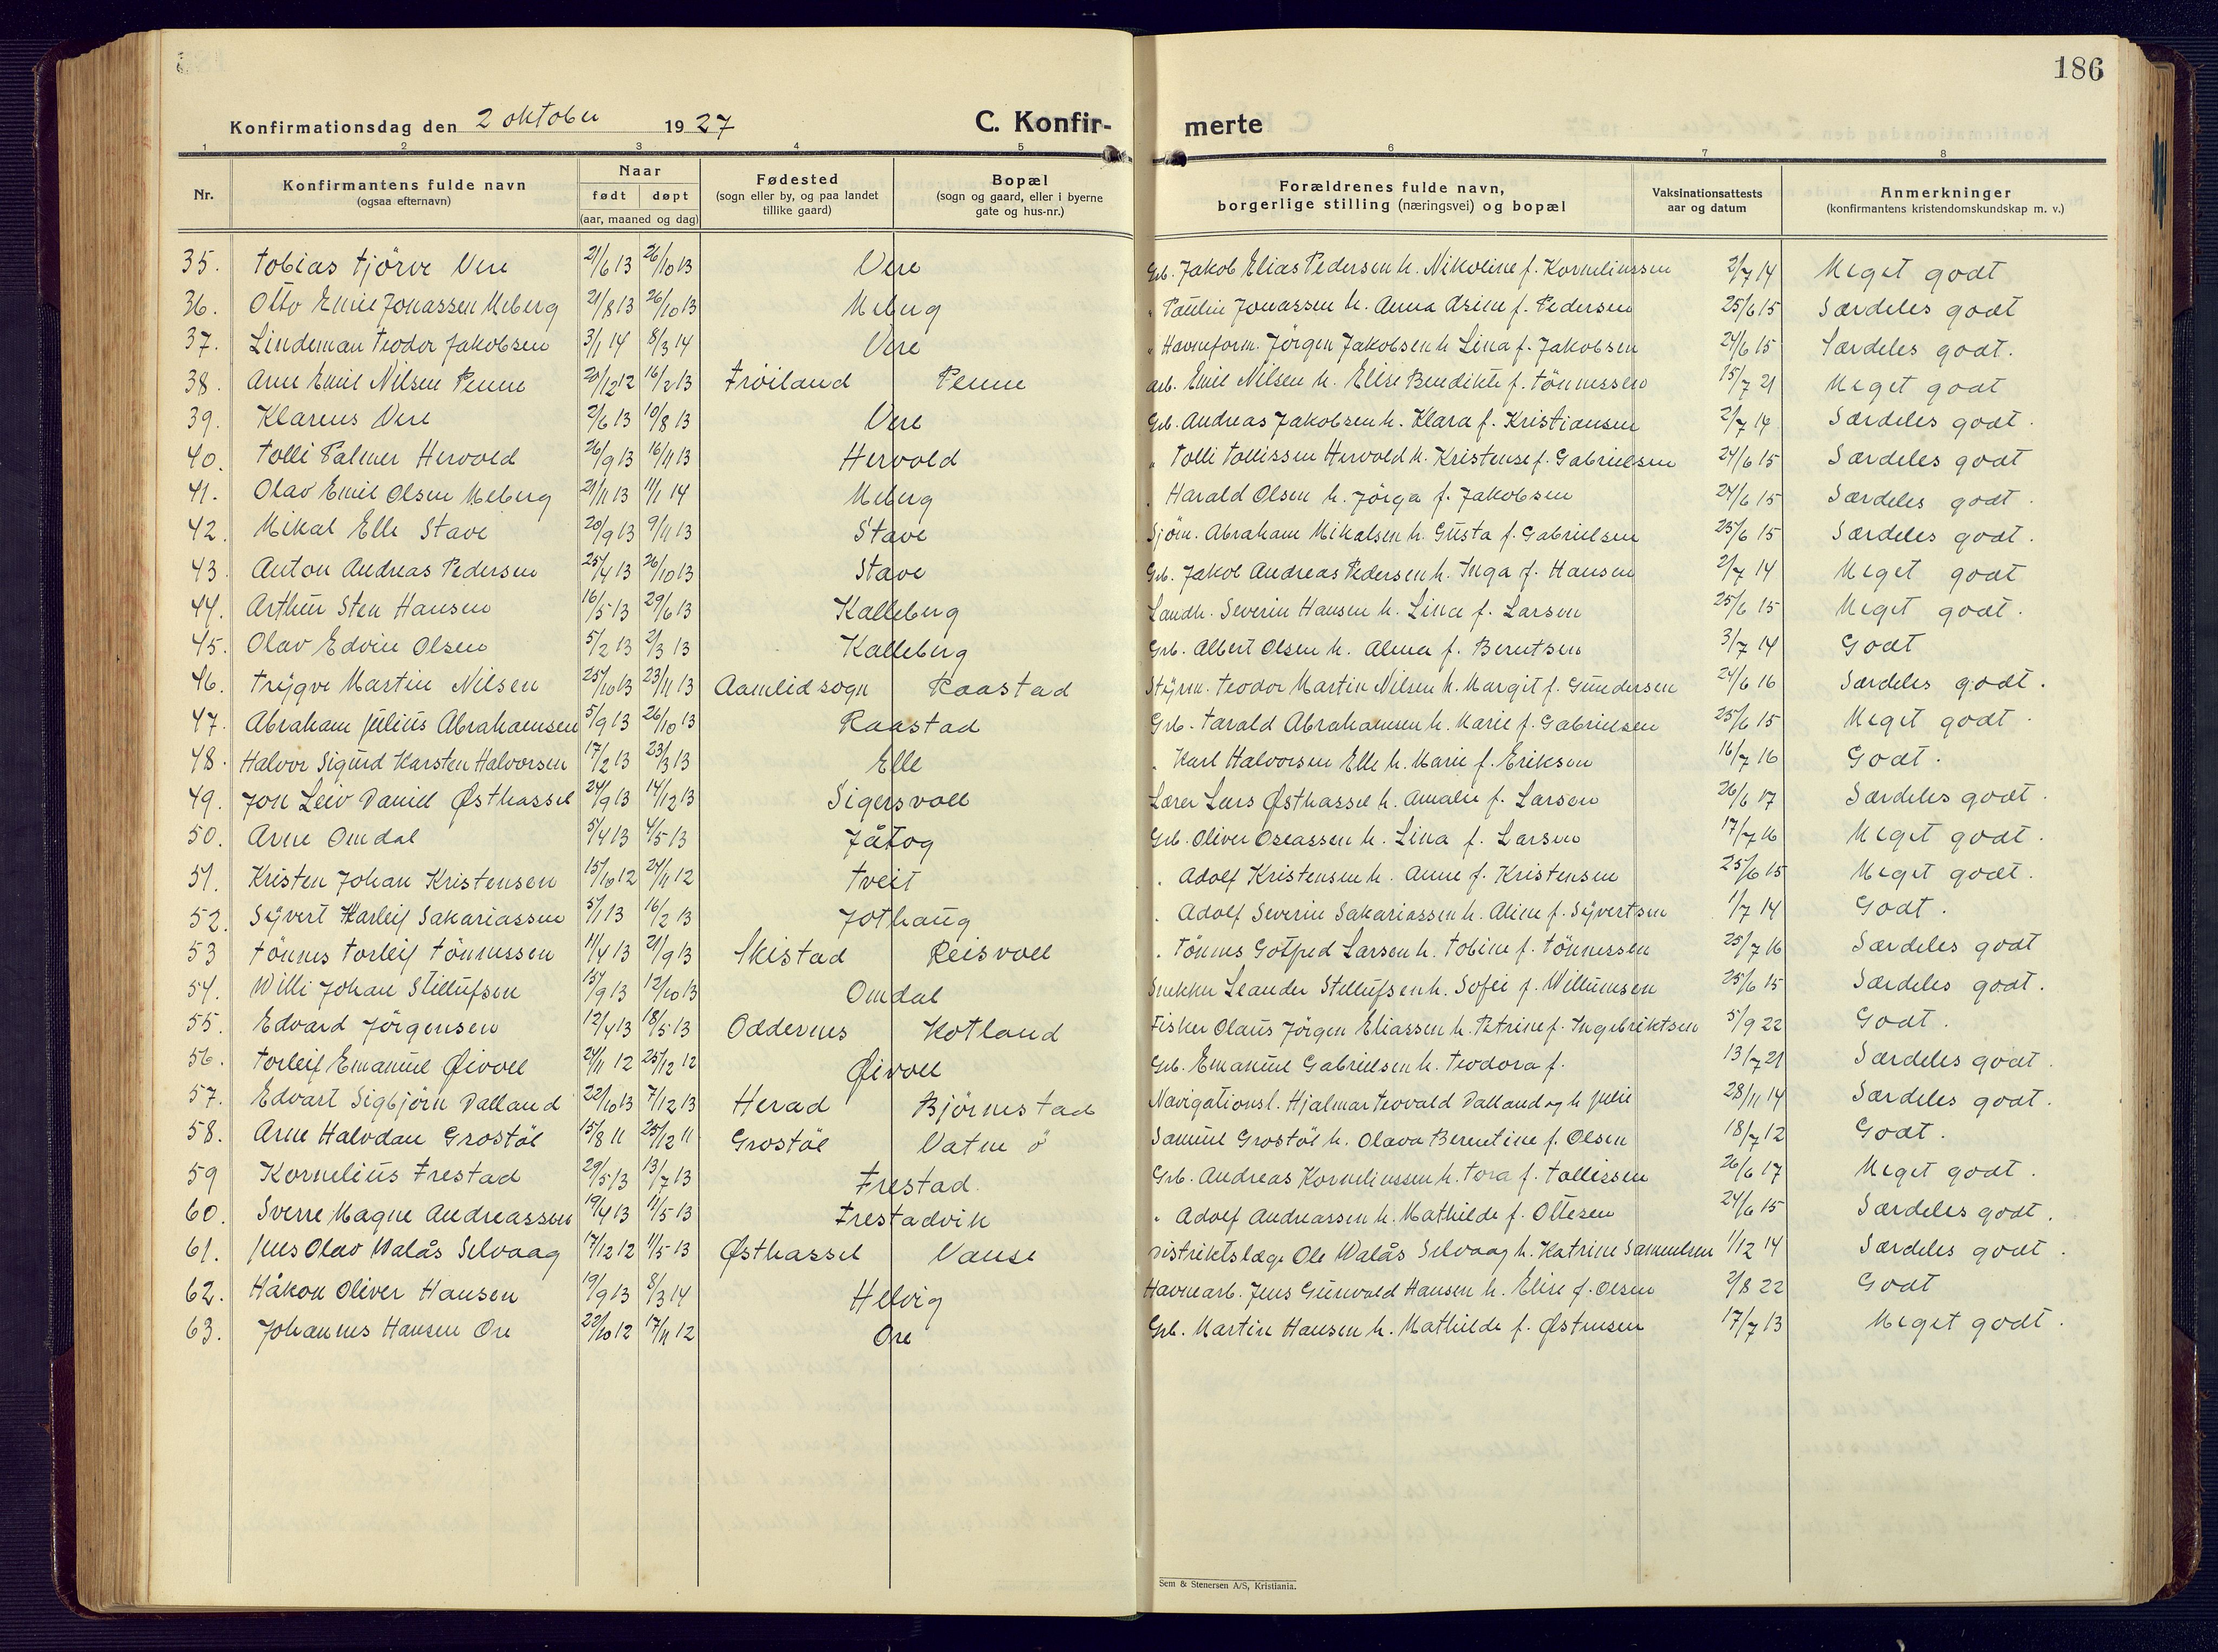 186
Konfirmationsdag den 2 oktober 1927 C. Konfirmerte
1 2 3 4 5 6 7 8
Nr. Konfirmantens fulde navn (ogsaa efternavn) Naar født døpt (aar, maaned og dag) Fødested (sogn eller by, og paa landet tillike gaard) Bopæl (sogn og gaard, eller i byerne gate og hus-nr.) Forældrenes fulde navn, borgerlige stilling (næringsvei) og bopæl Vaksinationsattests aar og datum Anmerkninger (konfirmantens kristendomskundskap m. v.)
35. Tobias Tjörve Vere 21/6 13 26/10 13 Vere Grb. Jakob Elias Pedersen h. Nikoline f. Korneliussen 2/7 14 Meget godt
36. Otto Emil Jonassen Meberg 21/8 13 26/10 13 Meberg " Paulin Jonassen h. Anna Asine f. Pedersen 25/6 15 Særdeles godt
37. Lindeman Teodor Jakobsen 3/1 14 8/3 14 Vere " Havneform. Jörgen Jakobsen h Lina f. Jakobsen 24/6 15 Særdeles godt.
38. Arne Emil Nilsen Penne 20/12 12 16/2 13 Fröiland Penne arb. Emil Nilsen h. Elise Bendikte f. Tönnessen 15/7 21 Meget godt
39. Klarens Vere 2/6 13 10/8 13 Vere Grb. Andreas Jakobsen h. Klara f. Kristiansen 2/7 14 Særdeles godt.
40. Tolli Palmer Hervold 26/9 13 16/11 13 Hervold " Tolli Tollissen Hervold h. Kristense f. Gabrielsen 24/6 15 Særdeles godt
41. Olav Emil Olsen Meberg 21/11 13 11/1 14 Meberg " Harald Olsen h. Jörga f. Jakobsen 24/6 15 Særdeles godt.
42. Mikal Elle Stave 20/9 13 9/11 13 Stave Sjöm. Abraham Mikalsen h. Gusta f. Gabrielsen 25/6 15 Særdeles godt.
43. Anton Andreas Pedersen 25/4 13 26/10 13 Stave Grb. Jakob Andreas Pedersen h. Inga f. Hansen 2/7 14 Meget godt
44. Arthur Sten Hansen 16/5 13 29/6 13 Kalleberg Landh. Severin Hansen h. Lina f. Larsen 25/6 15 Meget godt.
45. Olav Edvin Olsen 5/2 13 2/3 13 Kalleberg Grb. Albert Olsen h. Alma f. Berntsen 3/7 14 Godt
46. Trygve Martin Nilsen 25/10 13 23/11 13 Aamlid sogn Raastad Styrm. Teodor Martin Nilsen h. Margit f. Gundersen 24/6 16 Særdeles godt.
47. Abraham Julius Abrahamsen 5/9 13 26/10 13 Raastad Grb. Tarald Abrahamsen h. Marie f. Gabrielsen 25/6 15 Meget godt.
48. Halvor Sigurd Karsten Halvorsen 17/2 13 23/3 13 Elle " Karl Halvorsen Elle h. Marie f. Eriksen 16/7 16 Godt.
49. Jon Leiv Daniel Østhassel 24/9 13 14/12 13 Sigersvoll Lærer Lars Østhassel h. Amalie f. Larsen 26/6 17 Særdeles godt.
50. Arne Omdal 5/4 13 4/5 13 Jåtog Grb. Oliver Oseassen h. Lina f. Larsen 17/7 16 Meget godt.
51. Kristen Johan Kristensen 15/10 12 24/11 12 Tveit " Adolf Kristensen h. Anne f. Kristensen 25/6 15 Meget godt.
52. Syvert Harleif Sakariassen 5/1 13 16/2 13 Jothaug " Adolf Severin Sakariassen h. Aline f. Syvertsen 1/7 14 Godt.
53 Tönnes Torleif Tönnessen 11/4 13 21/9 13 Skistad Reisvoll " Tönnes Gotfred Larsen h. Tobine f. Tönnessen 25/7 16 Særdeles godt
54. Willi Johan Stellufsen 15/9 13 12/10 13 Omdal Snekker Leander Stellufsen h. Sofie f. Willumsen 25/6 15 Særdeles godt.
55. Edvard Jörgensen 12/4 13 18/5 13 Oddernes Kotland Fisker Olaus Jörgen Eliassen h. Petrine f. Ingebriktsen 5/9 22 Godt.
56. Torleif Emanuel Øivoll 24/11 12 25/12 12 Øivoll Grb. Emanuel Gabrielsen h. Teodora f. 13/7 21 Særdeles godt.
57. Edvart Sigbjörn Dalland 22/10 13 7/12 13 Herad Björnestad Navigationsl. Hjalmar Teovald Dalland og h Julie 28/11 14 Særdeles godt.
58. Arne Halvdan Grostöl 15/8 11 25/12 11 Grostöl Vatne ö Samuel Grostöl h. Olava Berntine f. Olsen 18/7 12 Godt.
59 Kornelius Frestad 29/5 13 13/7 13 Frestad Grb. Andreas Korneliussen h. Tora f. Tollissen 26/6 17 Meget godt.
60. Sverre Magne Andreassen 19/4 13 11/5 13 Frestadvik " Adolf Andreassen h. Mathilde f. Ottesen 24/6 15 Særdeles godt.
61. Jens Olav Walås Selvaag 17/12 12 11/5 13 Østhassel Vanse Distriktslæge Ole Walås Selvaag h. Katrine Samuelsen 1/12 14 Særdeles godt.
62. Håkon Oliver Hansen 19/9 13 8/3 14 Helvig Havnearb. Jens Gunvald Hansen h. Elise f. Olsen 2/8 22 Godt
63. Johannes Hansen Ore 22/10 12 17/11 12 Ore Grb. Martin Hansen h. Mathilde f. Østensen 17/7 13 Meget godt.
Sem & Stenersen A/S, Kristiania.